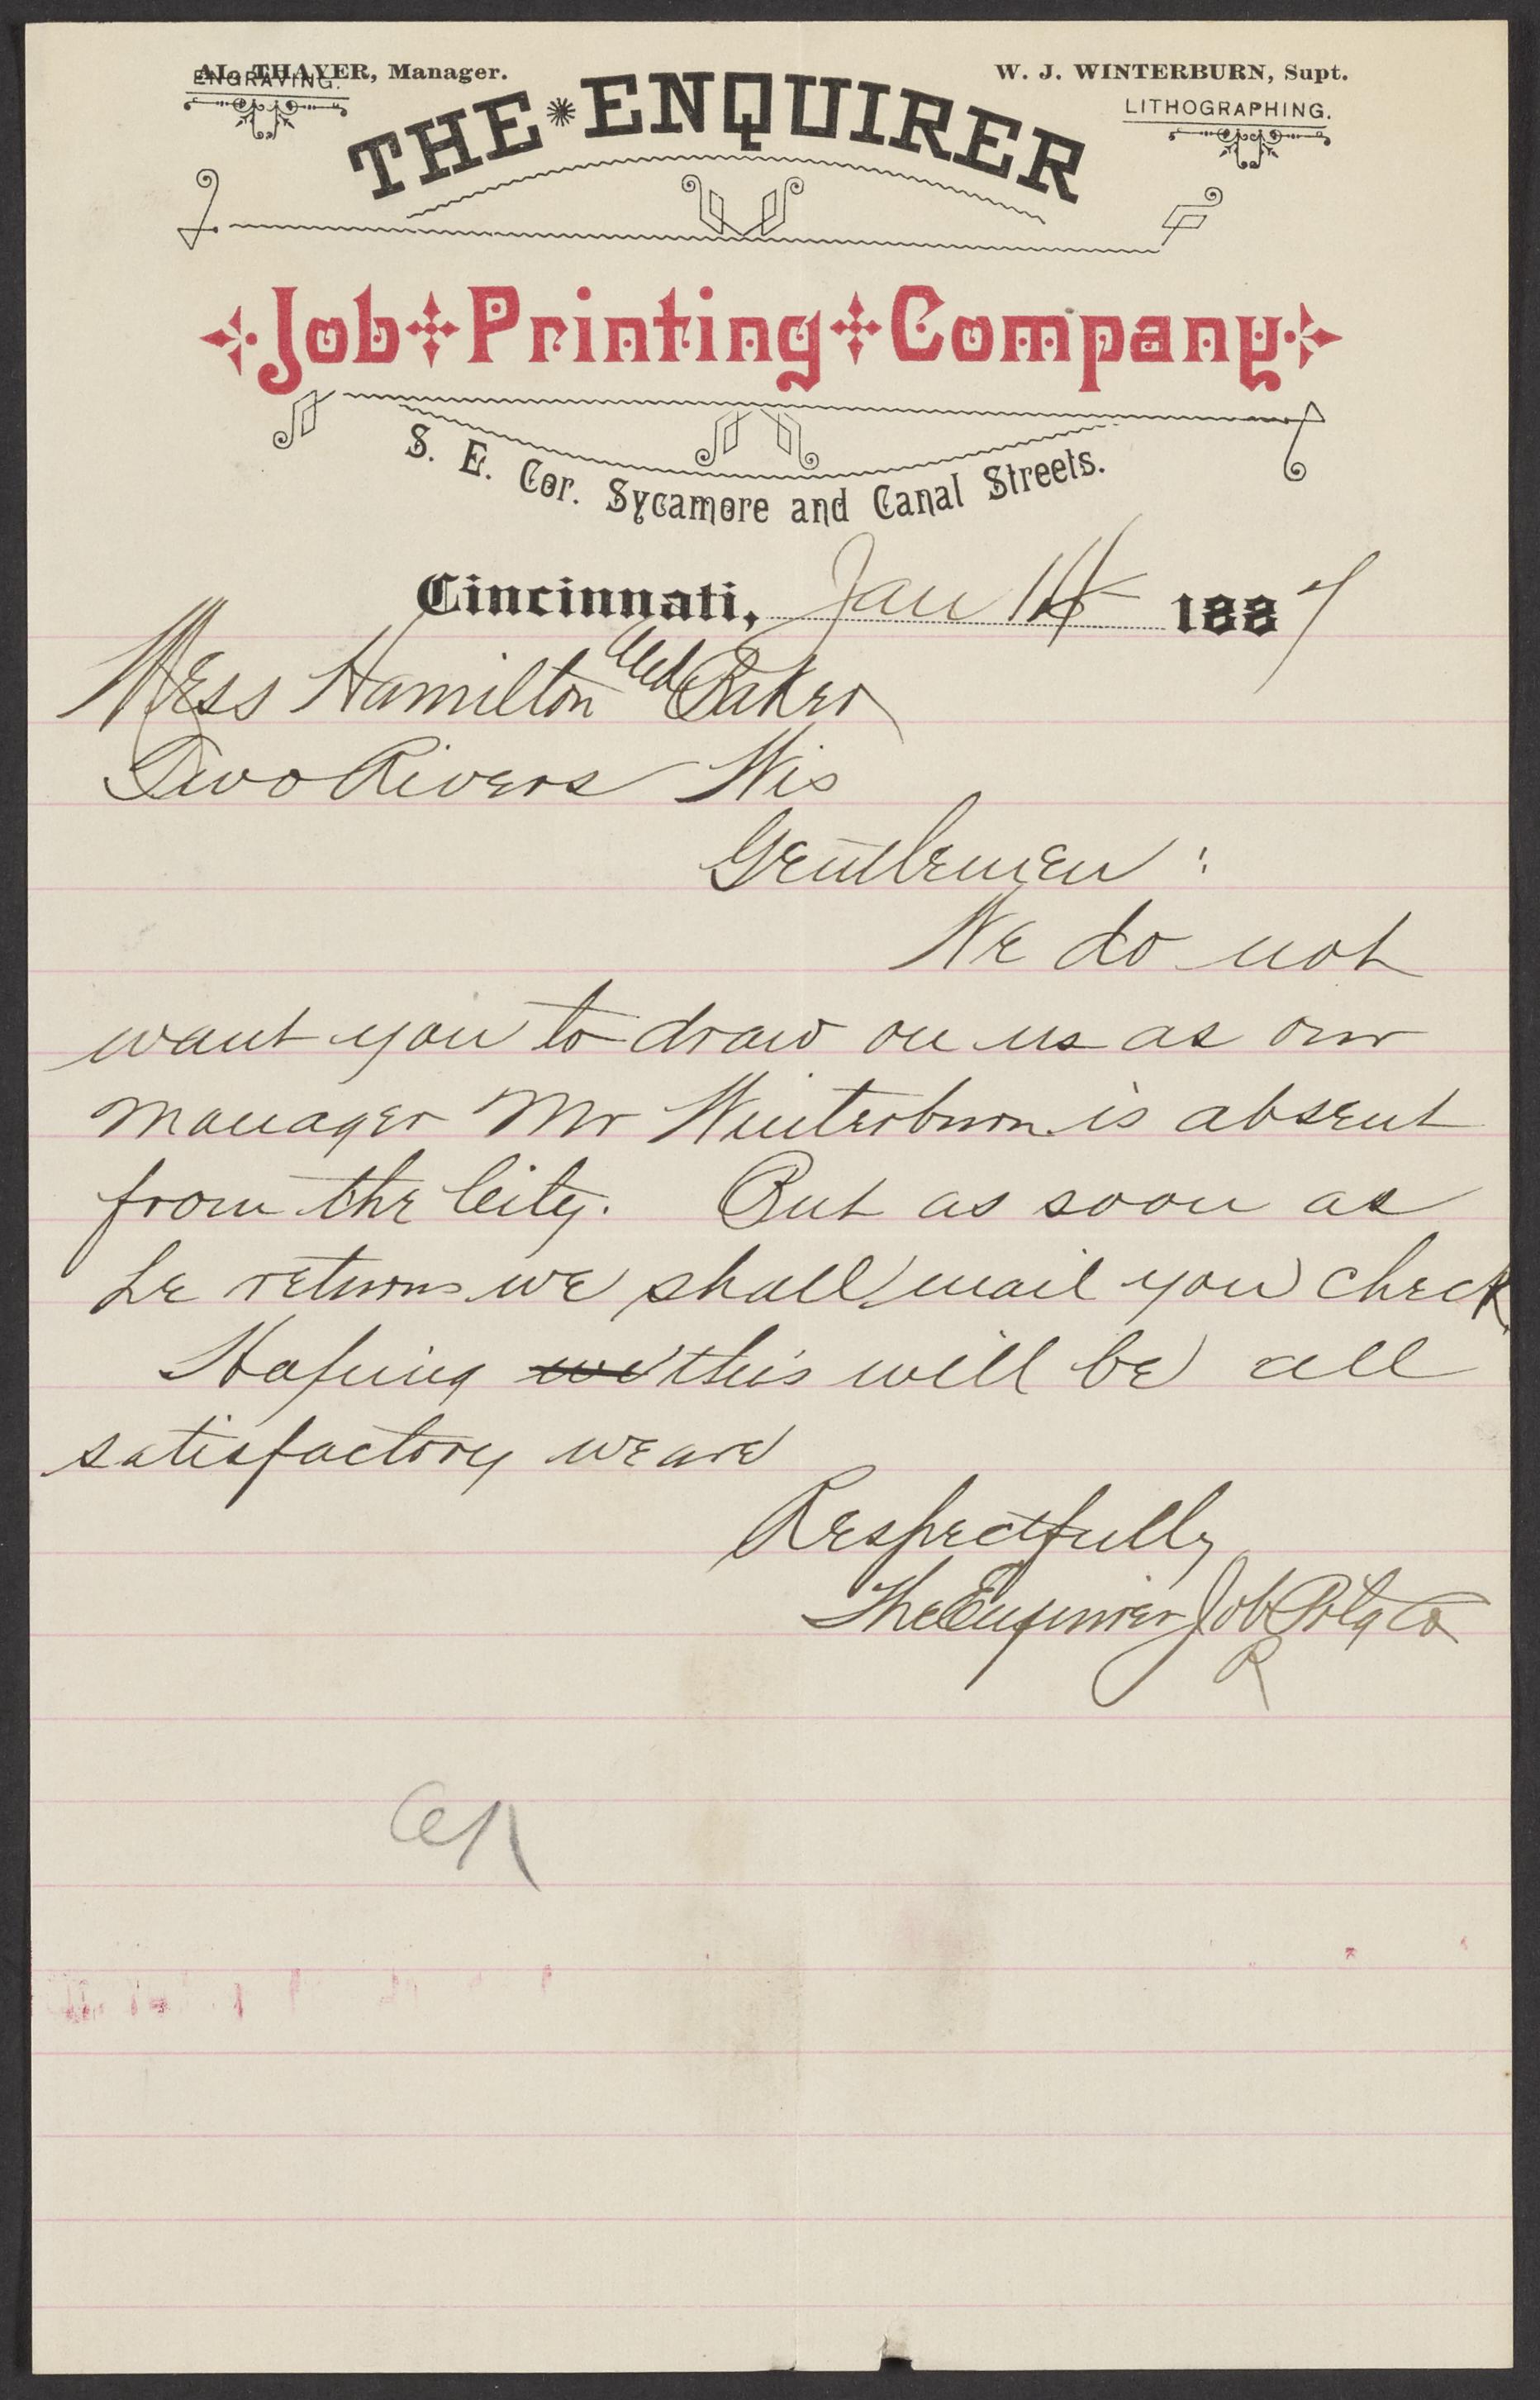 AL. THAYER, Manager.
ENGRAVING.
W. J. WINTERBURN, Supt.
LITHOGRAPHING.
THE ENQUIRER
Job Printing Company
S. E. Cor. Sycamore and Canal Streets.
Cincinnati, Jan 1887
Mess Hamilton and Baker
Two Rivers Wis
Gentlemen :
We do not
want you to draw on us as our
manager Mr Winterburn is absent
from the City. But as soon as
he returns we shall mail you check
Hoping we this will be all
satisfactory we are
Respectfully
The Enquirer Job Ptg Co
R